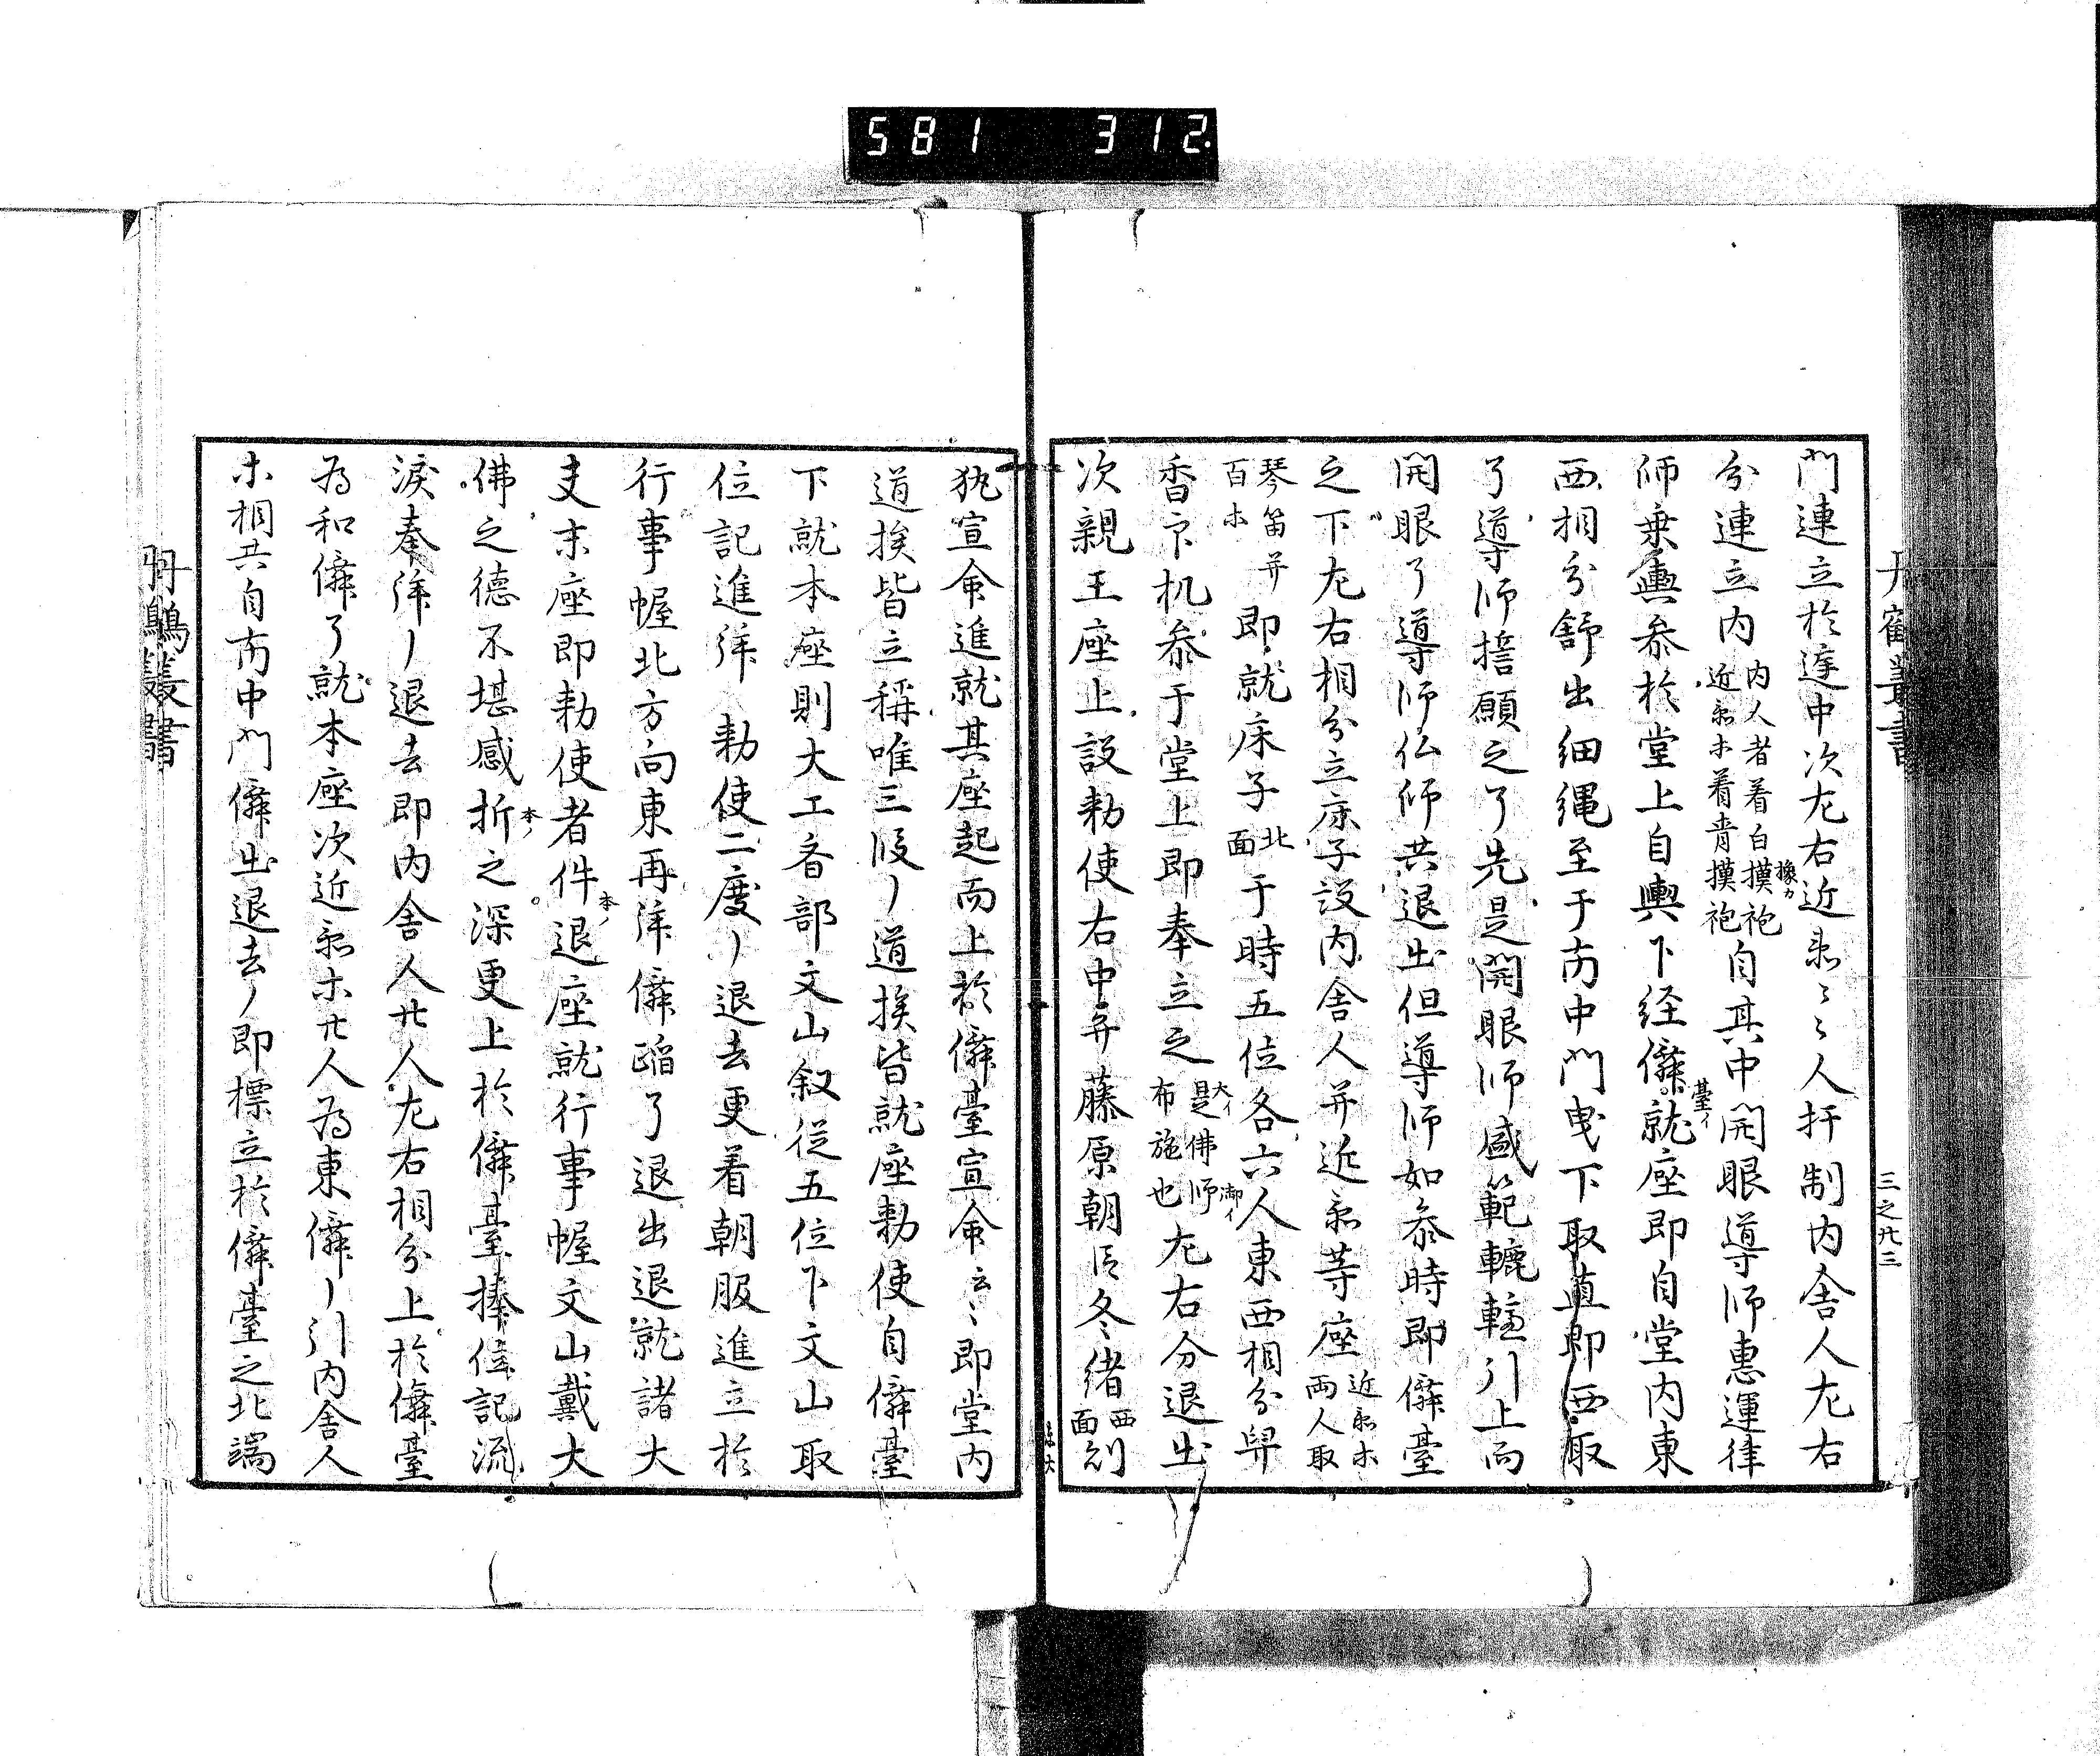 581 312.
丹鶴叢書
三之廿三
門連立於逵中次左右近衛〻〻人扞制内舎人左右
分連立内内人者着白摸袍近衛木着青摸袍自其中開眼導師惠運律
橡カ
師乗輿参於堂上自輿下経儛就座即自堂内東
臺イ
西相分舒出細縄至于南中門曳下取直即西取
了導師誓願之了先是開眼師盛範轆轤引上而
開眼了導師仏師共退出但導師如参時即儛臺
之下左右相分立床子設内舎人并近衛等座近衛木両人取
琴笛并百木即就床子北面于時五位各六人東西相分舁
香下机参于堂上即奉立之是佛師布施也左右分退出
大イ
御イ
次親王座上設勅使右中弁藤原朝臣冬緒西面
執宣命進就其座起而上於儛臺宣命云〻即堂内
道挨皆立稱唯三段〳〵道挨皆就座勅使自儛臺
下就本座則大工各部文山叙従五位下文山取
位記進拜〳〵勅使二度〳〵退去更着朝服進立於
行事幄北方向東再拜儛蹈了退出退就諸大
夫末座即勅使者件退座就行事幄文山戴大
本ノ
佛之德不堪感折之深更上於儛臺捧位記流
本ノ
涙奉拜〳〵退去即内舎人廿人左右相分上於儛臺
為和儛了就本座次近衛木廿人為東儛〳〵引内舎人
木相共自南中門儛出退去〳〵即標立於儛臺之北端
丹鶴叢書